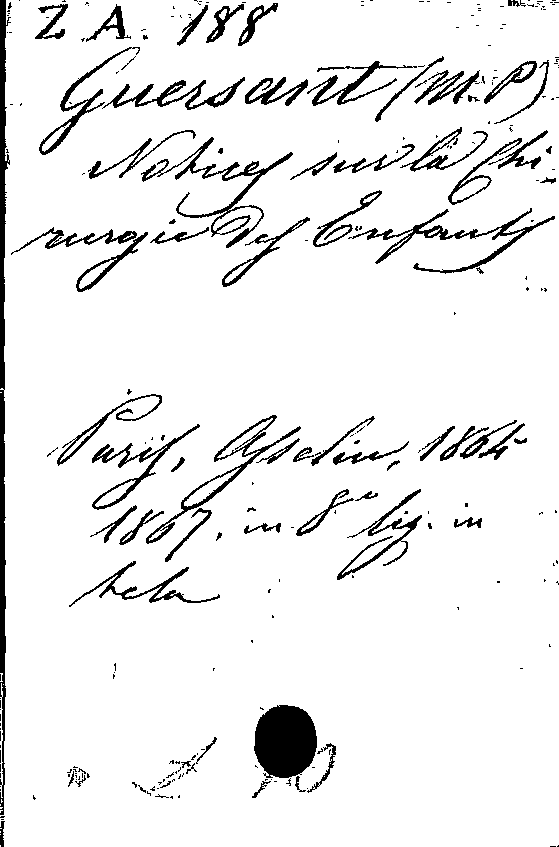 Z A. 188
Guersant (M. P)
Notices sur la Chi-
rurgie des Enfants
Paris, Asselin, 1864-
1867. in 8° lig. in
tela